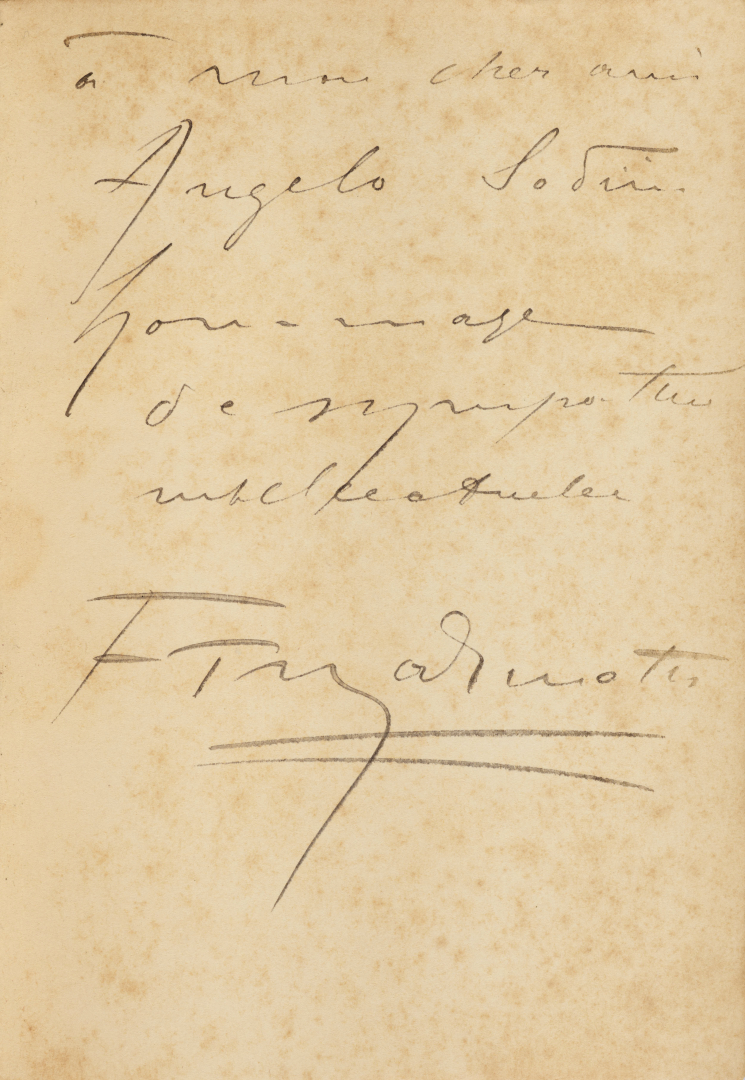 à mon cher ami
Angelo Sodini
hommage
de sympathie
intellectuelle
F T Marinetti